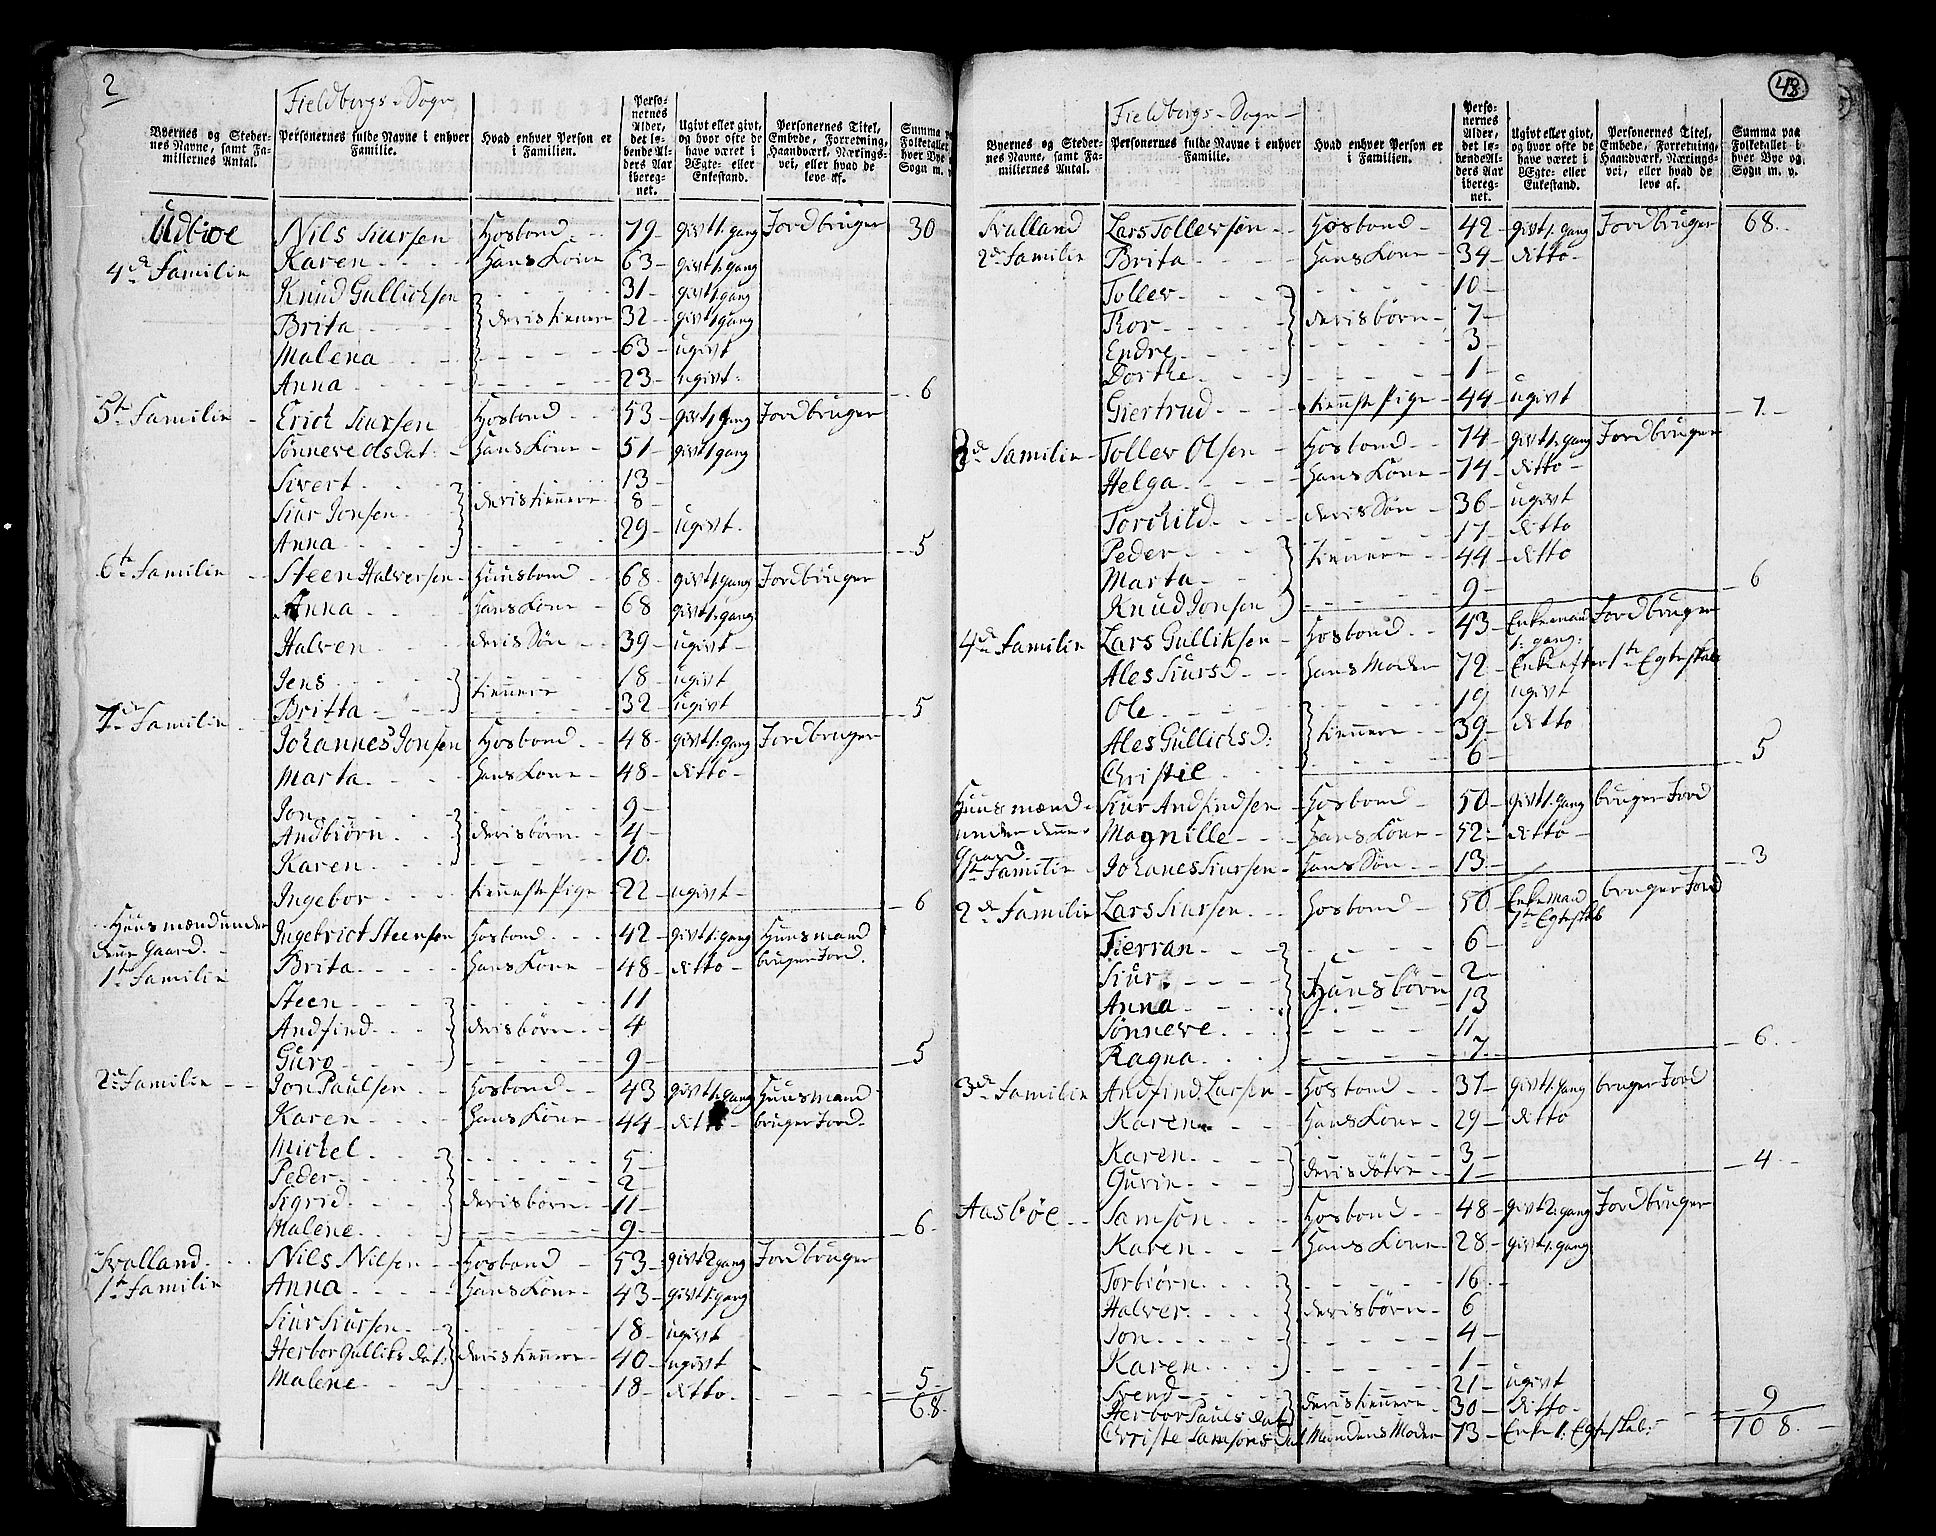 2
Fieldbergs-Sogn
Byernes og Stedernes Navne, samt Familiernes Antal. | Personernes fulde Navne i enhver Familie. | Hvad enhver Person er i Familien. | Personernes Alder, det løbende Alders Aar iberegnet. | Ugivt eller givt, og hvor ofte de have været i Ægte- eller Enkestand. | Personernes Titel, Embede, Forretning, Haandværk, Næringsvei, eller hvad de leve af. | Summa paa Folketallet i hver Bye og Sogn m. v.
Udbioe Nils Siursen Hosbond 79 givt 1. gang Jordbruger 30
4de Familie Karen Hans Kone 63 givt 1 gang
Knud Gullichsen 31 givt 1 gang
Brita deris tiennere 32 givt 1 gang
Malena 63 ugivt
Anna 23 ugivt 6
5te Familie Erich Siursen Hosbond 53 givt 1 gang Jordbruger
Sønneve Olsdat: Hans Kone 51 givt 1 gang
Sivert 13
Siur Jonsen deris tiennere 8
Anna 29 ugivt 5
6te Familie Steen Halversen Huusbond 68 givt 1 gang Jordbruger
Anna Hans Kone 68 givt 1. gang
Halven deris Søn 39 ugivt
Jens 18 ugivt
Britta tiennere 32 ugivt 5
7de Familie Johannes Jonsen Hosbond 48 givt 1. gang Jordbruger
Marta Hans Kone 48 ditto
Jon 9
Andbiørn deris børn 4
Karen 10
Ingebor tienneste Pige 22 ugivt 6
Huusmænd under Ingebrict Steensen Hosbond 42 givt 1. gang Huusmand
denne Gaard. Brita Hans Kone 48 ditto bruger Jord.
1te Familie
Steen 11
Andfind deris børn 4
Guro 9 5
2de Familie Jon Paulsen Hosbond 43 givt 1. gang Huusmand
Karen Hans Kone 44 ditto bruger Jord
Michel 5
Peder 2
Sigrid deris børn 11
Malene 9 6
Svalland Nils Nilsen Hosbond 53 givt 2 gang Jordbruger
1te Familie Anna Hans Kone 43 givt 1. gang
Siur Siursen 18 ugivt
Herbor Gulliks dat: deris tiennere 40 ugivt
Malene 18 ditto 5
68
48
Fieldbergs-Sogn
Byernes og Stedernes Navne, samt Familiernes Antal. | Personernes fulde Navne i enhver Familie. | Hvad enhver Person er i Familien. | Personernes Alder, det løbende Alders Aar iberegnet. | Ugivt eller givt, og hvor ofte de have været i Ægte- eller Enkestand. | Personernes Titel, Embede, Forretning, Haandværk, Næringsvei, eller hvad de leve af. | Summa paa Folketallet i hver Bye og Sogn m. v.
Svalland Lars Tollevsen Hosbond 42 givt 1. gang Jordbruger 68
2de Familie Brita Hans Kone 34 ditto
Tollev 10
Tor deris børn 7
Endre 3
Dorthe 1
Giertrud tienneste Pige 44 ugivt 7
3de Familie Tollev Olsen Hosbond 74 givt 1. gang Jordbruger
Helga Hans Kone 74 ditto
Torchild deris Søn 36 ugivt
Peder 17 ditto
Marta tiennere 44 ditto
Knud Jonsen 9 6
4de Familie Lars Gulliksen Hosbond 43 Enkemand 1. gang: Jordbruger
Ales Siursd Hans Moder 72 Enke efter 1te Egteskab
Ole 19 ugivt
Ales Gullichsd: tiennere 39 ditto
Christie 6 5
Huusmænd Siur Andfindsen Hosbond 50 givt 1. gang bruger Jord
under denne Magnille Hans Kone 52 ditto
Gaard.
1te Familie Johanes Siursen Hans Søn 13 3
2de Familie Lars Siursen Hosbond 50 Enkemand 1te Egteskab bruger Jord
Fierran 6
Siur 2
Anna Hans børn 13
Sønneve 11
Ragna 7 6
3de Familie Andfind Larsen Hosbond 37 givt 1. gang bruger Jord
Karen Hans Kone 29 ditto
Karen 3
Gurin deris døtre 1 4
Aasbøe Samson Hosbond 48 givt 2. gang Jordbruger
Karen Hans Kone 28 givt 1. gang
Torbiørn 16
Halver deris børn 6
Jon 4
Karen 1
Svend 21 ugivt
Herbor Pauls dat deris tiennere 30 ditto 9
Christe Samsons dat Mandens Moder 73 Enke 1. Egteskab: 108